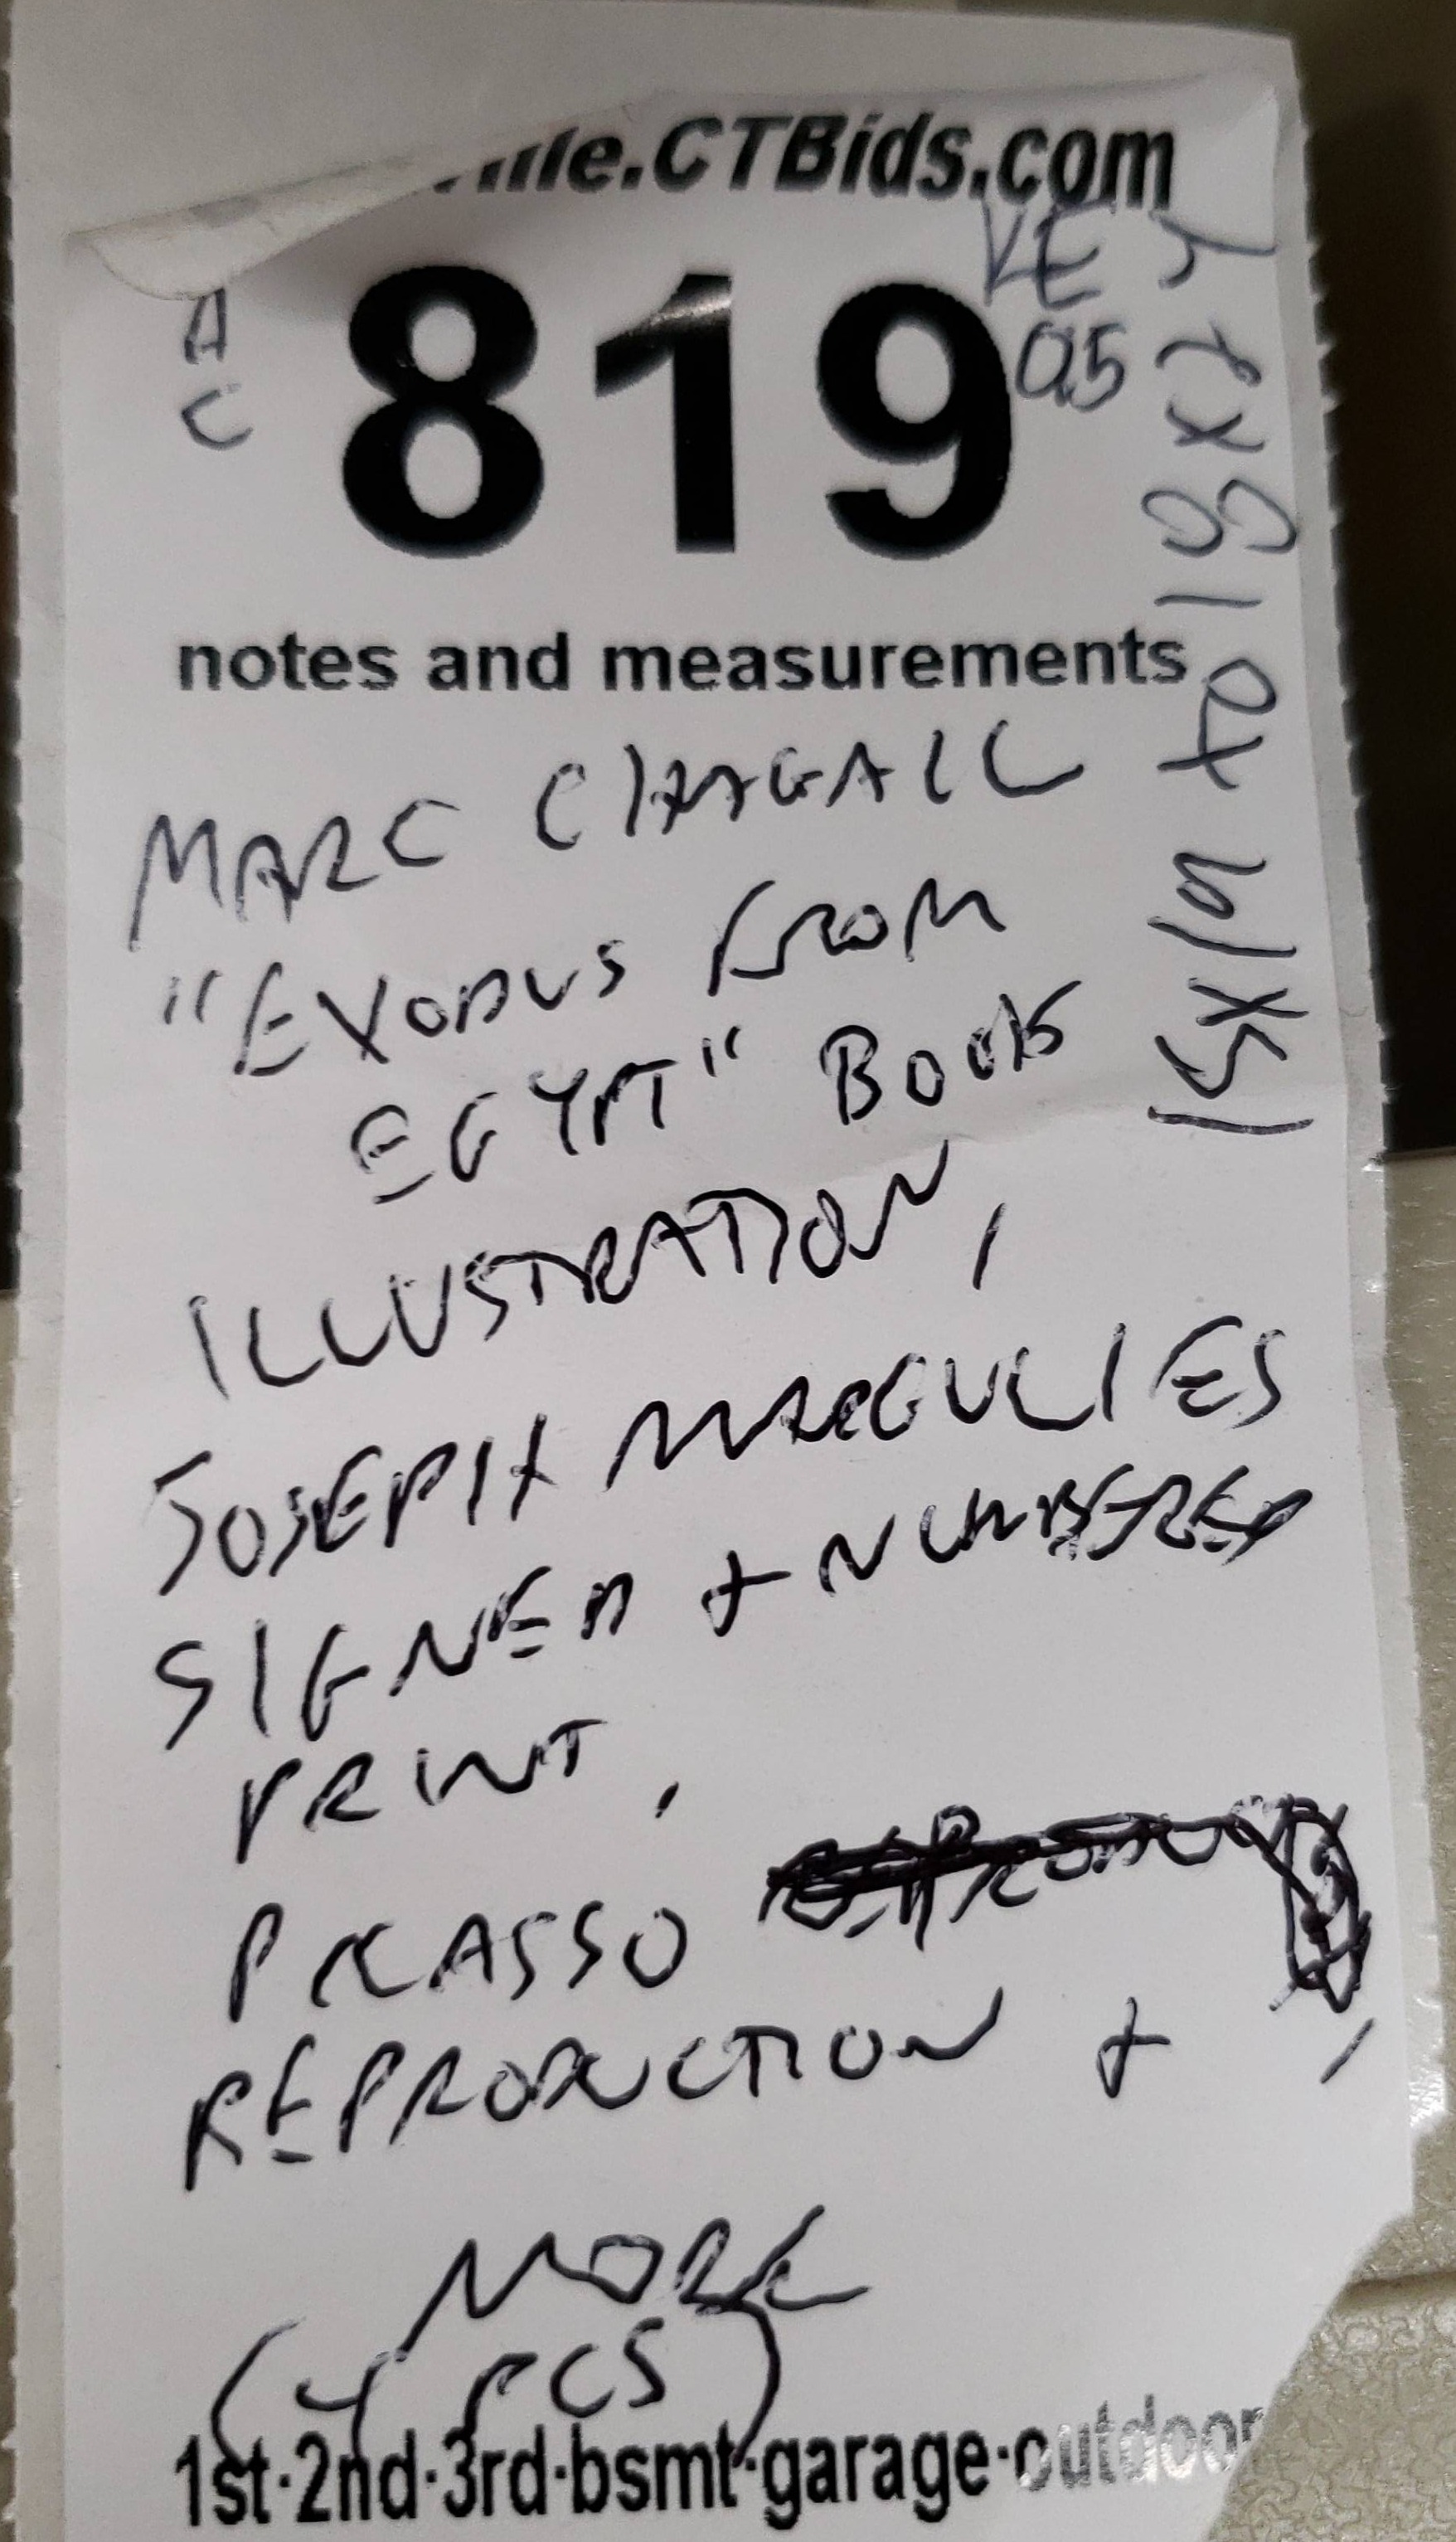 .CTBids.com
A
C
819
KE
05
notes and measurements
MARC CHAGALL
"EXODUS FROM
EGYPT" BOOK
ILLUSTRATION,
JOSEPH MARGULIES
SIGNED + NUMBERED
PRINT,
PICASSO
REPRODUCTION + ,
MORE
(4 PCS)
1st·2nd·3rd·bsmt·garage·outdoor